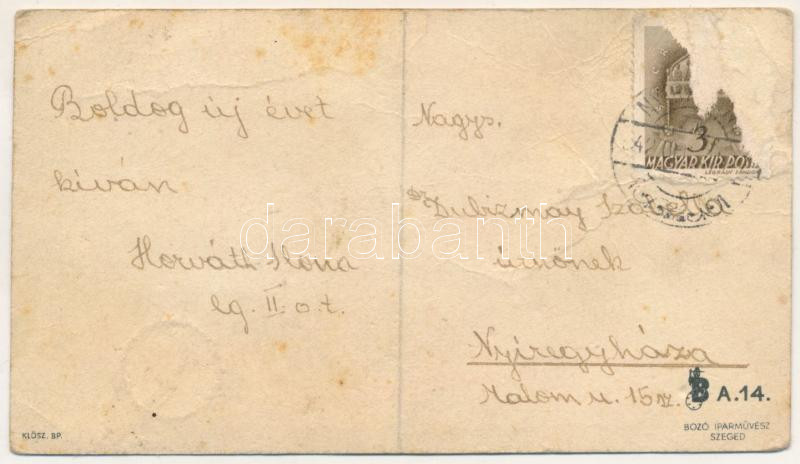 Boldog új évet
kíván
Horváth Ilona
lg. II. o. t.
KLŐSZ. BP.
Nagys.
Dubizmay Izabella
úrnőnek
Nyíregyháza
Malom u. 15
3
MAGYAR KIR. POSTA
LÉGRÁDY SÁNDOR
B A.14.
BOZÓ IPARMŰVÉSZ
SZEGED
darabanth